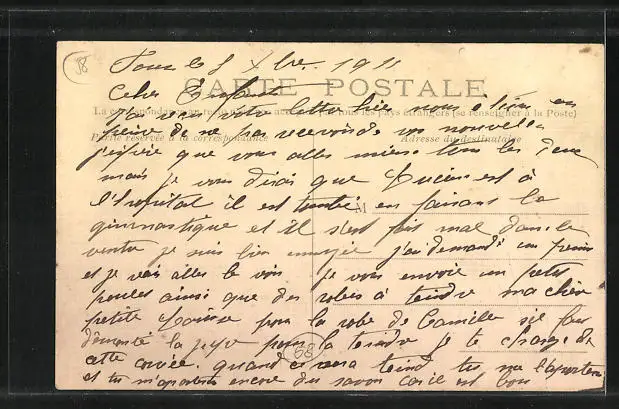 58
Tours le 5 Xbre 1911
CARTE POSTALE
Cher Enfant
La correspondance au recto n'est pas acceptée par tous les pays étrangers (se renseigner à la Poste)
j'ai reçu votre lettre hier nous étions en
Partie réservée à la correspondance
Adresse du destinataire
peine de ne pas recevoir de vos nouvelles
j'espère que vous alles mieux tous les deux
mais je vous dirai que Lucien est à
M
l'hopital il est tombé en faisans la
gimnastique et il s'est fait mal dans le
ventre je suis bien ennuyé j'ai demandé un
et je vais aller le voir je vous envoie un petit
poulet ainsi que des robes à teindre ma chère
petite Louise pour la robe de Camille s'il faut
démonté la jupe pour la teindre je te charge de
cette corvée quand ce sera teind tu me l'aportera
68
et tu m'aportera encore du savon car il est bon